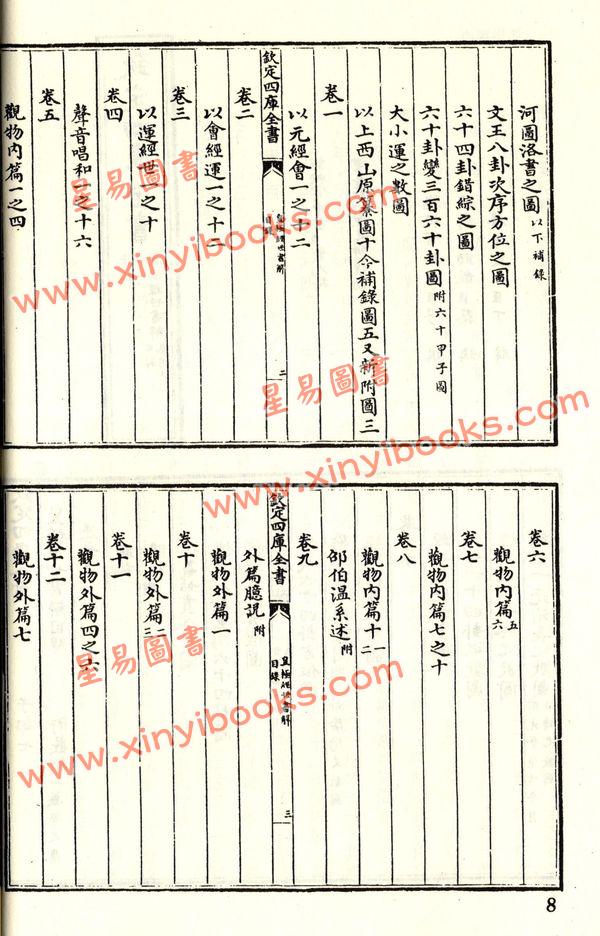 河圖洛書之圖 以下補錄
文王八卦次序方位之圖
六十四卦錯綜之圖
六十卦變三百六十卦圖 附六十甲子圖
大小運之數圖
以上西山原纂圖十今補錄圖五又新附圖三
卷一
以元經會一之十二
欽定四庫全書
皇極經世書解
目錄
二
卷二
以會經運一之十二
卷三
以運經世一之十
卷四
聲音唱和一之十六
卷五
觀物內篇一之四
卷六
觀物內篇五
六
卷七
觀物內篇七之十
卷八
觀物內篇十一
十二
邵伯溫系述附
卷九
欽定四庫全書
皇極經世書解
目錄
三
外篇臆說附
觀物外篇一
卷十
觀物外篇二
三
卷十一
觀物外篇四之六
卷十二
觀物外篇七
8
星易圖書
www.xinyibooks.com
星易圖書
www.xinyibooks.com
星易圖書
www.xinyibooks.com